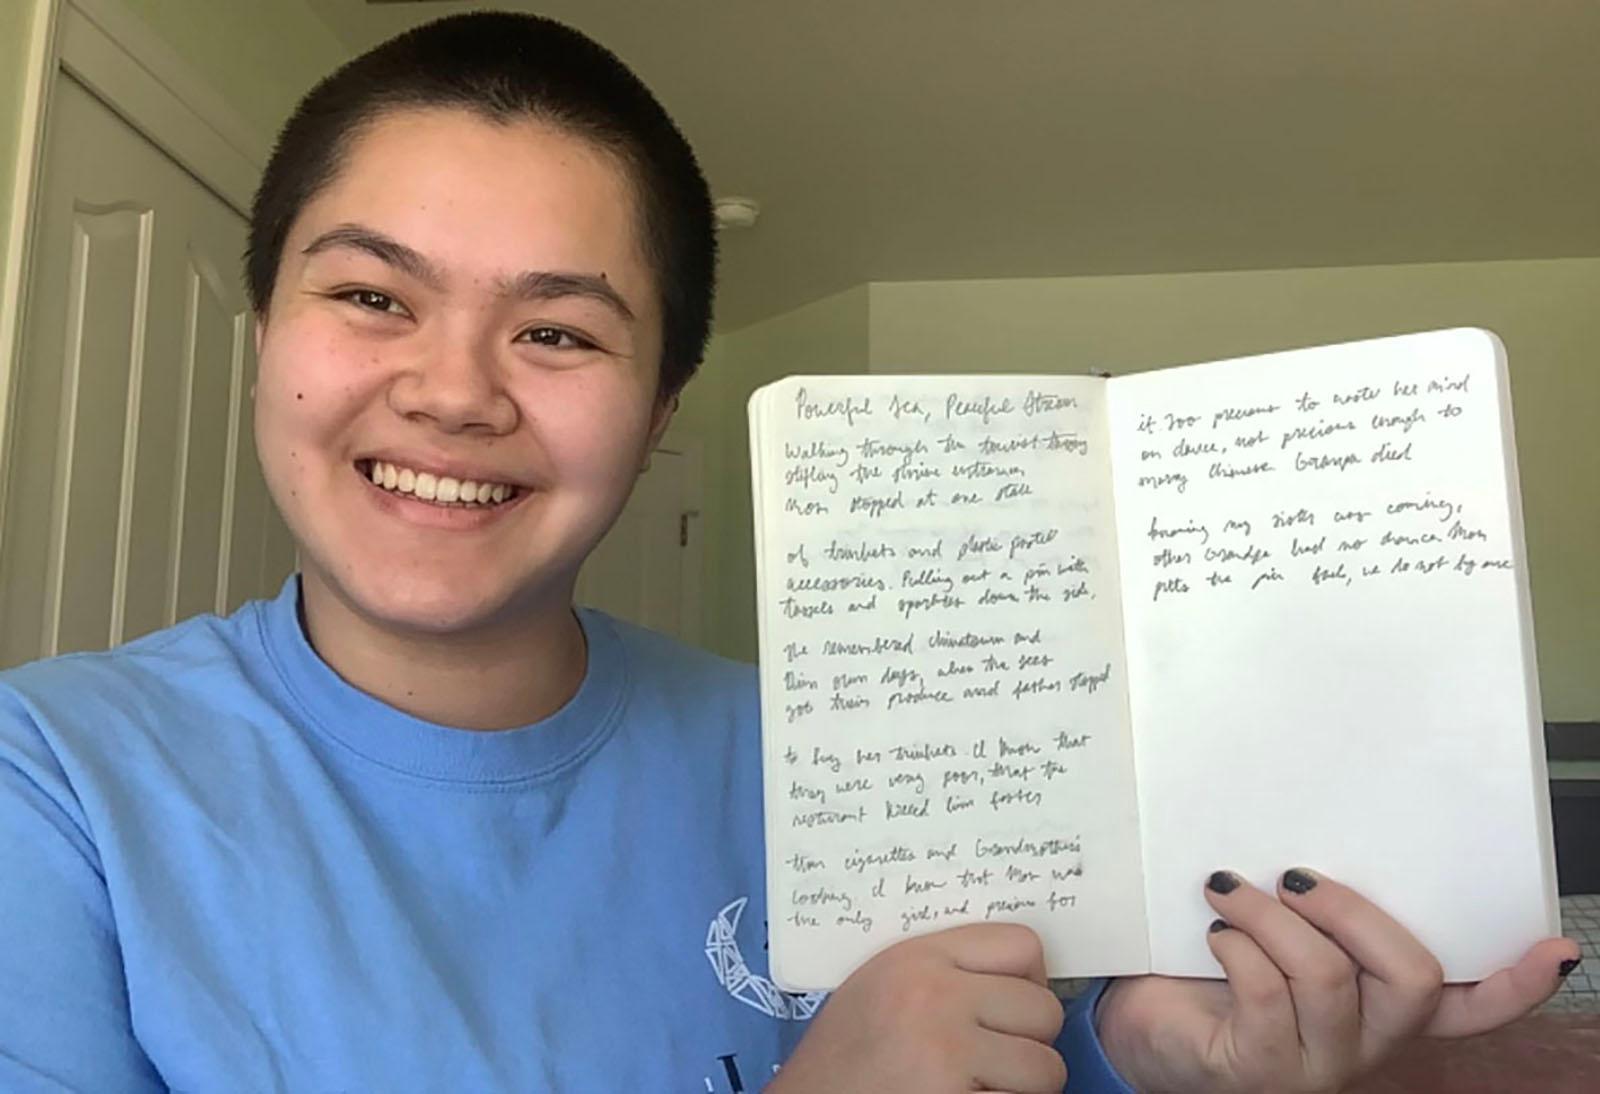 Powerful Sea, Peaceful Stream
Walking through the tourist throng
stifling the shrine
Mom stopped at one stall
of trinkets and plastic pastel
accessories. Pulling out a pin with
tassels and sparkles down the side,
she remembered Chinatown and
their own days, when the
got their produce and father stopped
to buy her trinkets. I know that
they were very poor, that the
restaurant killed him faster
than cigarettes and Grandmother's
cooking. I know that Mom was
the only girl, and precious for
it. Too precious to waste her mind
on dance, not precious enough to
marry Chinese. Grandpa died
knowing my sister was coming,
other Grandpa had no chance. Mom
puts the pin back, we do not buy one